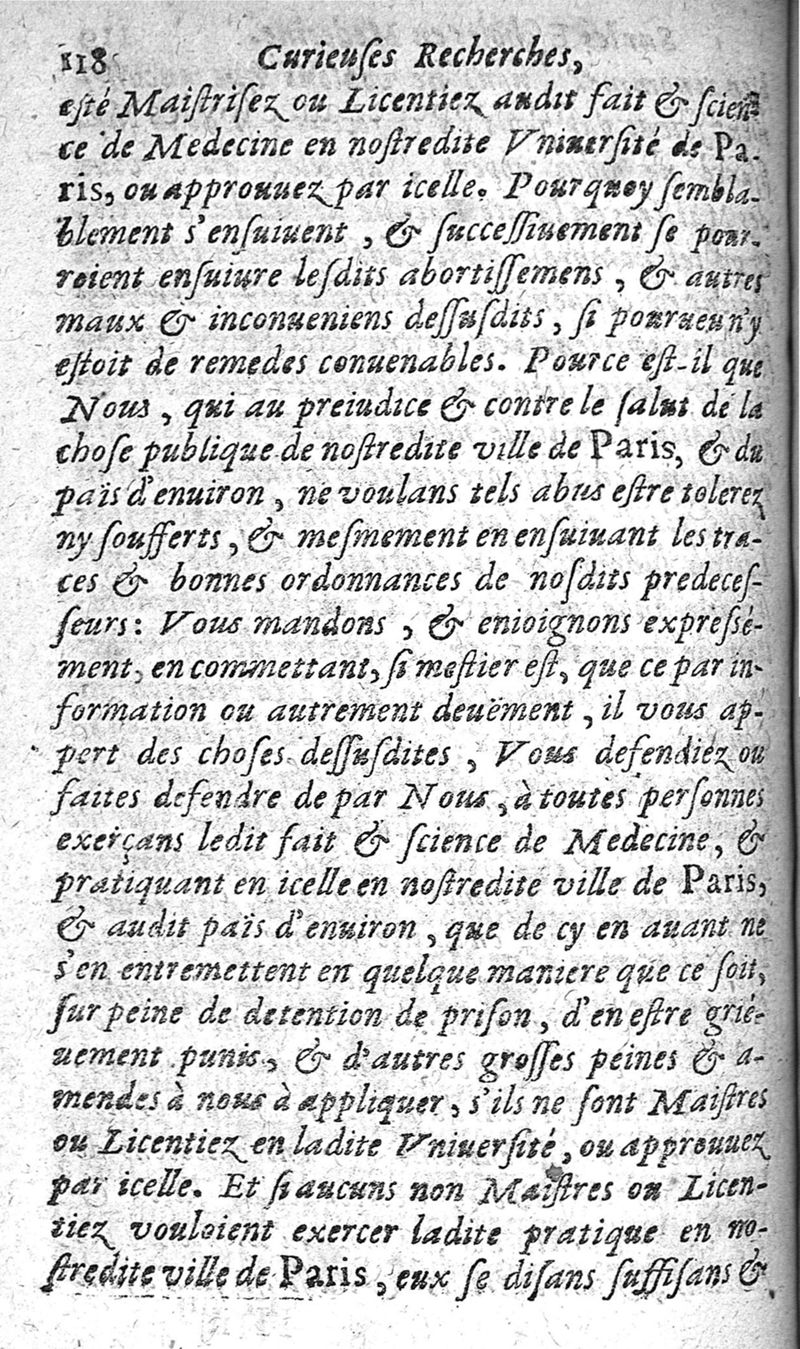 118 Curieuſes Recherches,
eſté Maiſtriſez ou Licentiez audit fait & ſcien-
ce de Medecine en noſtredite Vniuerſité de Pa-
ris, ou approuuez par icelle. Pourquoy ſembla-
blement s'enſuiuent , & ſucceſſiuement ſe pour-
roient enſuiure leſdits abortiſſemens , & autres
maux & inconueniens deſſuſdits, ſi pourueu n'y
eſtoit de remedes conuenables. Pource eſt-il que
Nous , qui au preiudice & contre le ſalut de la
choſe publique de noſtredite ville de Paris, & du
païs d'enuiron , ne voulans tels abus eſtre tolerez
ny ſoufferts , & meſmement en enſuiuant les tra-
ces & bonnes ordonnances de noſdits predeceſ-
ſeurs: Vous mandons , & enioignons expreſſé-
ment, en commettant, ſi meſtier eſt, que ce par in-
formation ou autrement deuëment , il vous ap-
pert des choſes deſſuſdites , Vous defendiez ou
faites defendre de par Nous , à toutes perſonnes
exerçans ledit fait & ſcience de Medecine, &
pratiquant en icelle en noſtredite ville de Paris,
& audit païs d'enuiron , que de cy en auant ne
s'en entremettent en quelque maniere que ce ſoit,
ſur peine de detention de priſon , d'en eſtre grié-
uement punis, & d'autres groſſes peines & a-
mendes à nous à appliquer , s'ils ne ſont Maiſtres
ou Licentiez en ladite Vniuerſité , ou approuuez
par icelle. Et ſi aucuns non Maiſtres ou Licen-
tiez vouloient exercer ladite pratique en no-
ſtredite ville de Paris , eux ſe diſans ſuffiſans &